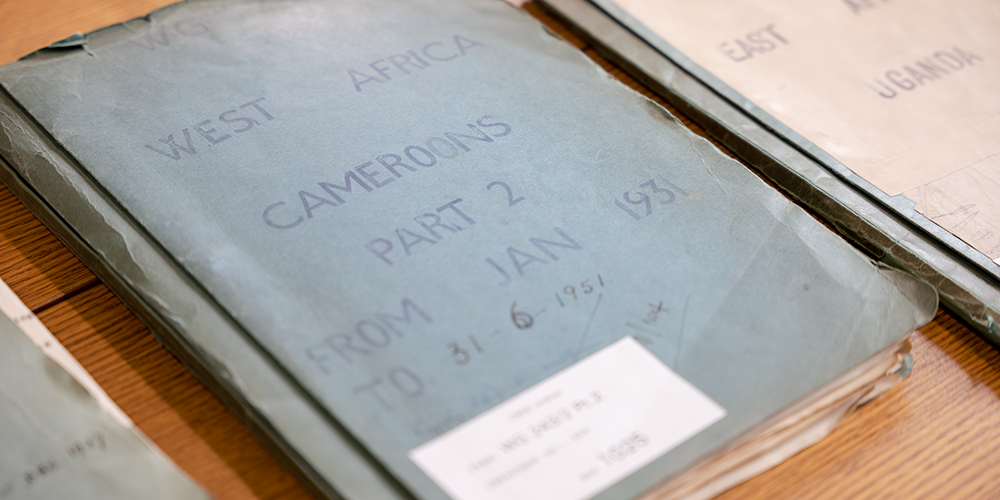 WG
WEST AFRICA
CAMEROONS
PART 2
FROM JAN 1931
TO 31-6-1951
EAST
UGANDA